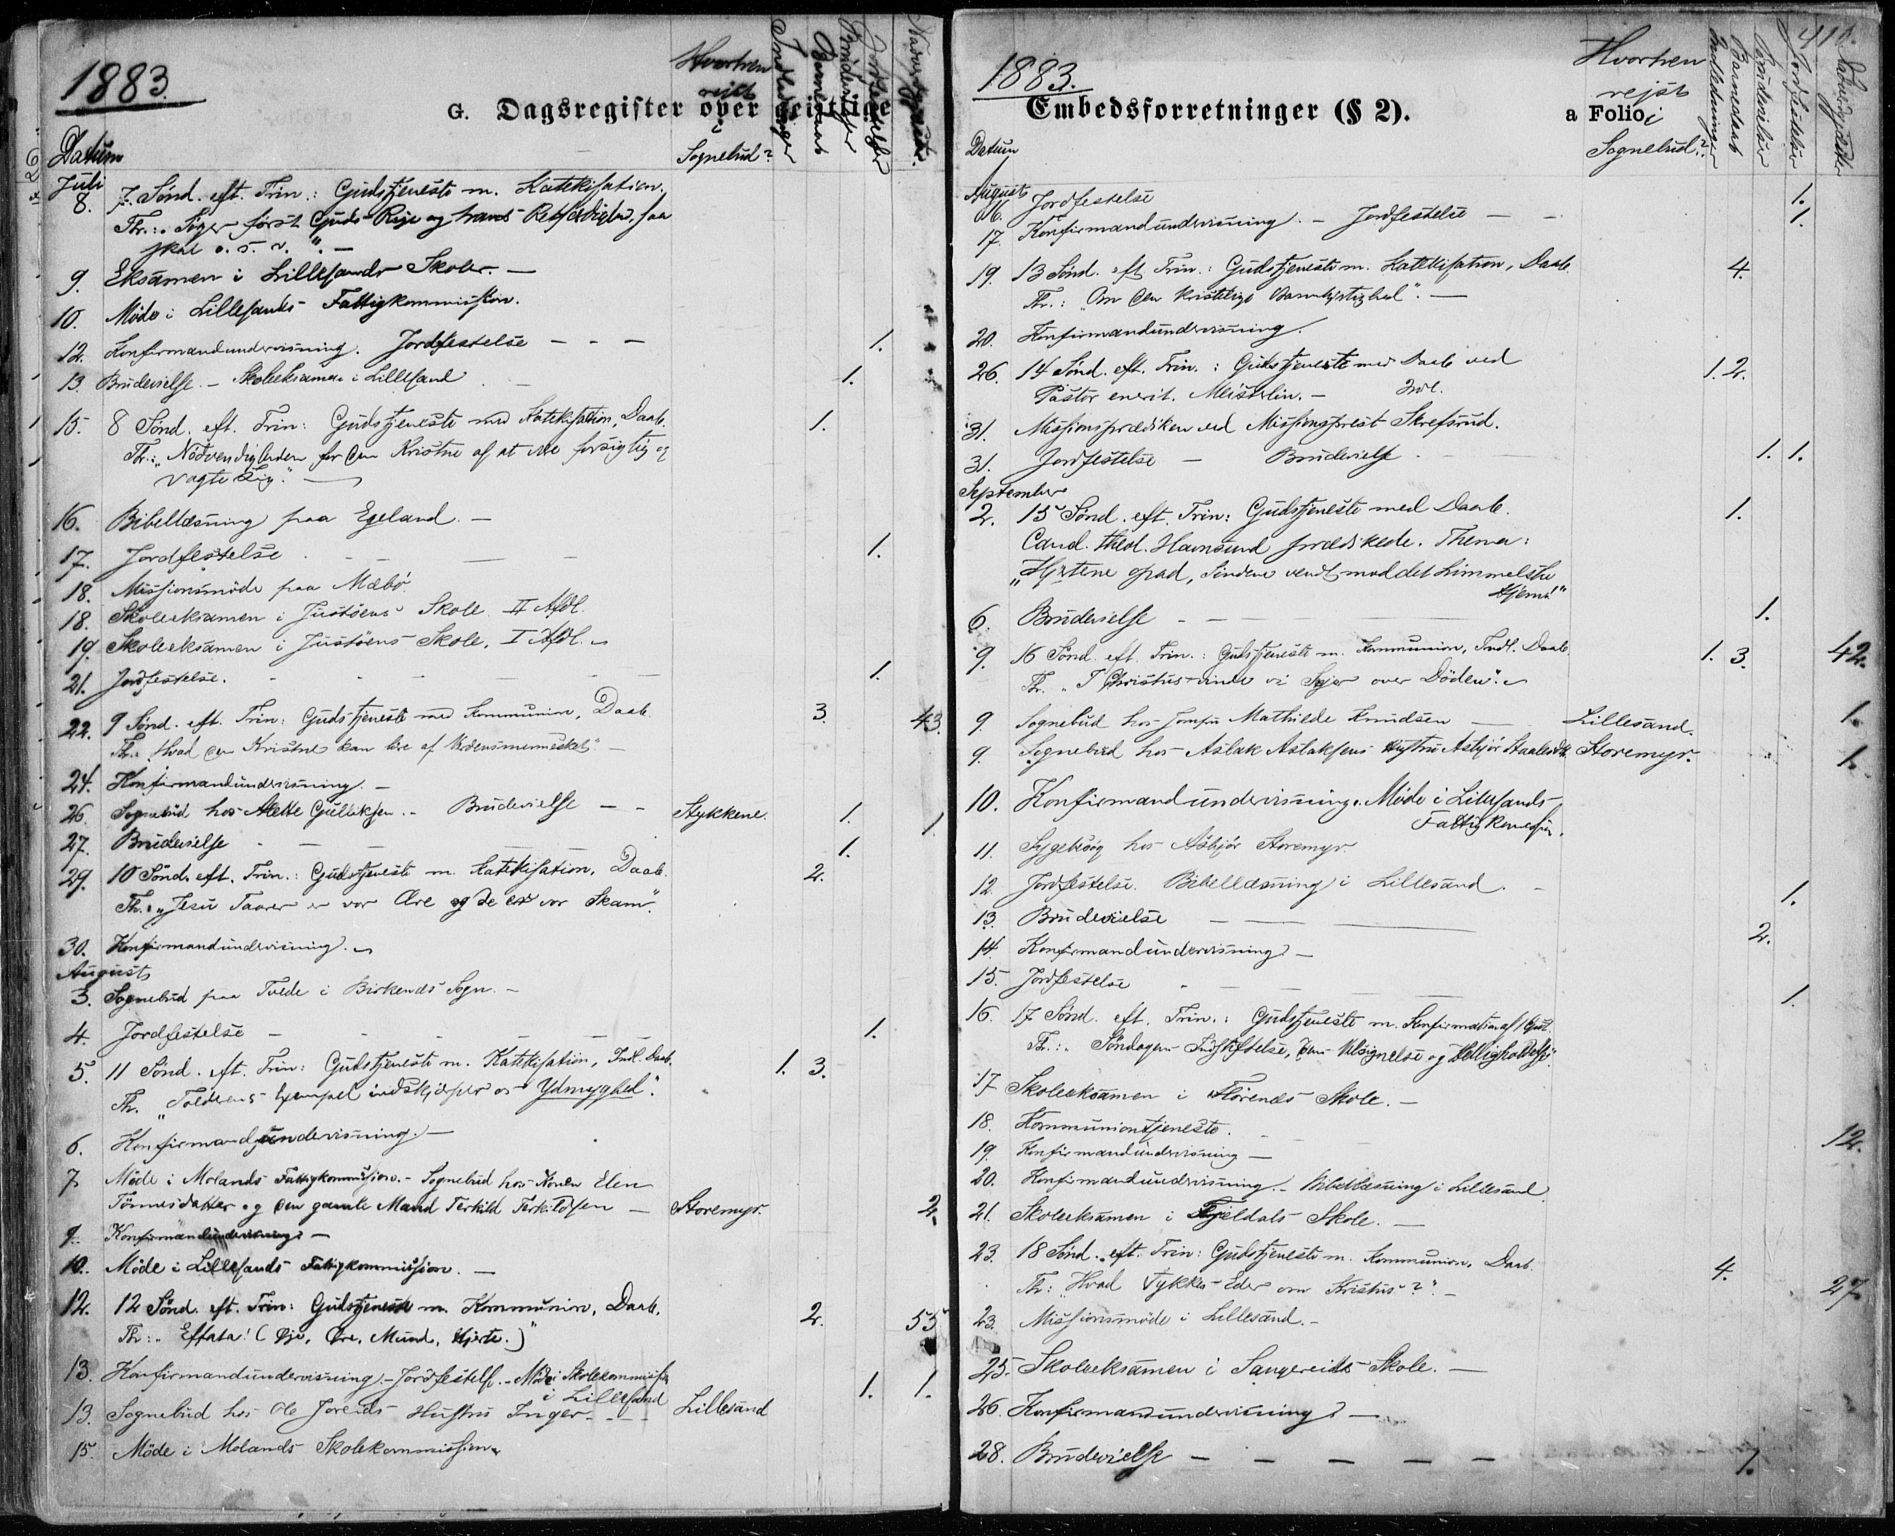 1883.
G. Dagsregister over geistlige
Hvorhen rejst i Sognebud?
Indledninger
Barnedaab
Brudevielser
Jordfestelser
Nadvergjæster
Datum
Juli
8. 7. Sönd. eft. Trin.: Gudstjeneste m. Katekisation.
Th.: "Söger först Guds Rige og hans Retfærdighed, saa
skal o. s. v." —
9. Eksamen i Lillesands Skoler. —
10. Möde i Lillesands Fattigkommission.
12. Konfirmandundervisning. Jordfestelse — — — 1.
13. Brudevielse. — Skoleeksamen i Lillesand — 1.
15. 8 Sönd. eft. Trin: Gudstjeneste med Katekisation, Daab. 1.
Th.: "Nödvendigheden for den Kristne af at være forsigtig og
vogte sig." —
16. Bibellæsning paa Egeland. —
17. Jordfestelse — — — 1.
18. Missionsmöde paa Mæbö
18. Skoleeksamen i Justöens Skole. II Afdl.
19. Skoleeksamen i Justöens Skole, I Afdl.
21. Jordfestelse. — — — 1.
22. 9 Sönd. eft. Trin: Gudstjeneste med Kommunion, Daab. 3. 43.
Th.: "Hvad den Kristne kan lære af Verdensmennesket" —
24. Konfirmandundervisning. —
26. Sognebud hos Alette Gulleksen. — Brudevielse — — Stykkene. 1. 1.
27. Brudevielse — — — 1.
29. 10 Sönd. eft. Trin.: Gudstjeneste m. Katekisation, Daab. 2.
Th.: "Jesu Taarer er vor Ære og de ere vor Skam".
30. Konfirmandundervisning.
August
3. Sognebud paa Tvede i Birkenæs Sogn. —
4. Jordfestelse — — — 1.
5. 11 Sönd. eft. Trin: Gudstjeneste m. Katekisation, Indl. Daab. 1. 3.
Th. "Tolderens Exempel indskjærper os Ydmyghed".
6. Konfirmandundervisning. —
7. Möde i Molands Fattigkommission. — Sognebud hos Konen Elen
Tönnesdatter og den gamle Mand Terkild Terkildsen — Storemyr. 2.
9. Konfirmandundervisning. —
10. Möde i Lillesands Fattigkommission. —
12. 12 Sönd. eft. Trin: Gudstjeneste m. Kommunion, Daab. 2. 55
Th: "Effata! (Øje, Øre, Mund, Hjerte.)"
13. Konfirmandundervisning. — Jordfestelse. — Möde i Skolekommission
i Lillesand 1. 1.
13. Sognebud hos Ole Hustru Inger — — — Lillesand
15. Möde i Molands Skolekommission
1883.
Embedsforretninger (§ 2).
a Folio
410.
Hvorhen rejst i Sognebud?
Indledninger
Barnedaab
Brudevielser
Jordfestelser
Nadvergjæster
Datum
August
16. Jordfestelse 1.
17. Konfirmandundervisning. — Jordfestelse — — 1.
19. 13 Sönd. eft. Trin.: Gudstjeneste m. Katekisation, Daab. 4.
Th.: "Om den kristelige Barmhjertighed". —
20. Konfirmandundervisning.
26. 14 Sönd. eft. Trin.: Gudstjeneste med Daab ved 1. 2.
Pastor emerit. Meisterlin. — Indl.
31. Missionsprædiken ved Missionsprest Skrefsrud.
31. Jordfestelse — Brudevielse 1. 1.
September
2. 15 Sönd. eft. Trin: Gudstjeneste med Daab. 1.
Cand. theol. Hamsund prædikede. Thema:
"Hjertene opad, Sindene vendt mod det himmelske
Hjem"
6. Brudevielse — — — 1.
9. 16 Sönd. eft. Trin.: Gudstjeneste m. Kommunion, Indl. Daab. 1. 3. 42.
Th. "I Christus vinde vi Sejer over Döden".
9. Sognebud hos Jomfru Mathilde Knudsen — Lillesand. 1.
9. Sognebud hos Aslak Aslaksens Hustru Asbjör Storemyr. 1.
10. Konfirmandundervisning. Möde i Lillesands
Fattigkommission.
11. Sygebesög hos Asbjör Storemyr.
12. Jordfestelse. Bibellæsning i Lillesand. — 1.
13. Brudevielse — — 2.
14. Konfirmandundervisning —
15. Jordfestelse — — — 1.
16. 17 Sönd. eft. Trin.: Gudstjeneste m. Konfirmation af 1 Gut.
Th.: "Söndagens Indstiftelse, dens Velsignelse og Helligholdelse".
17 Skoleeksamen i Skole. —
18. Kommuniontjeneste. — — 12.
19. Konfirmandundervisning —
20. Konfirmandundervisning. — Bibellæsning i Lillesand
21. Skoleeksamen i Fjeldals Skole. —
23. 18 Sönd. eft. Trin: Gudstjeneste m. Kommunion, Daab. 4. 27.
Th: "Hvad Tykkes Eder om Kristus?" —
23. Missionsmöde i Lillesand. —
25. Skoleeksamen i Sangereids Skole. —
26. Konfirmandundervisning —
28. Brudevielse — — — — — 1.